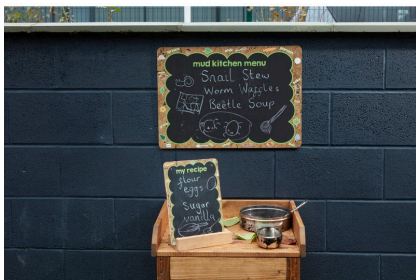 mud kitchen menu
Snail Stew
Worm Waffles
Beetle Soup
my recipe
flour
eggs
Sugar
vanilla